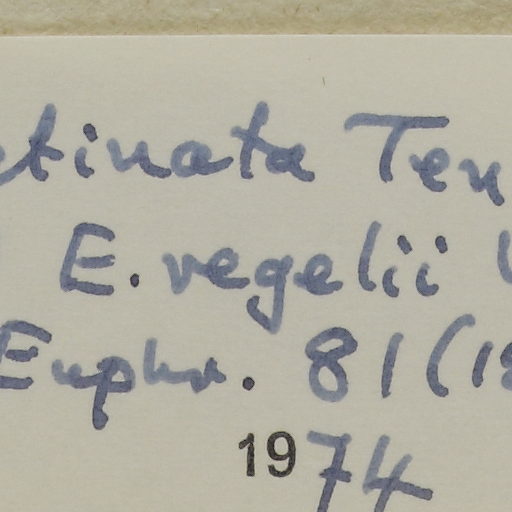 ctinata Ten
E. vegelii
Euphr. 81 (18
1974